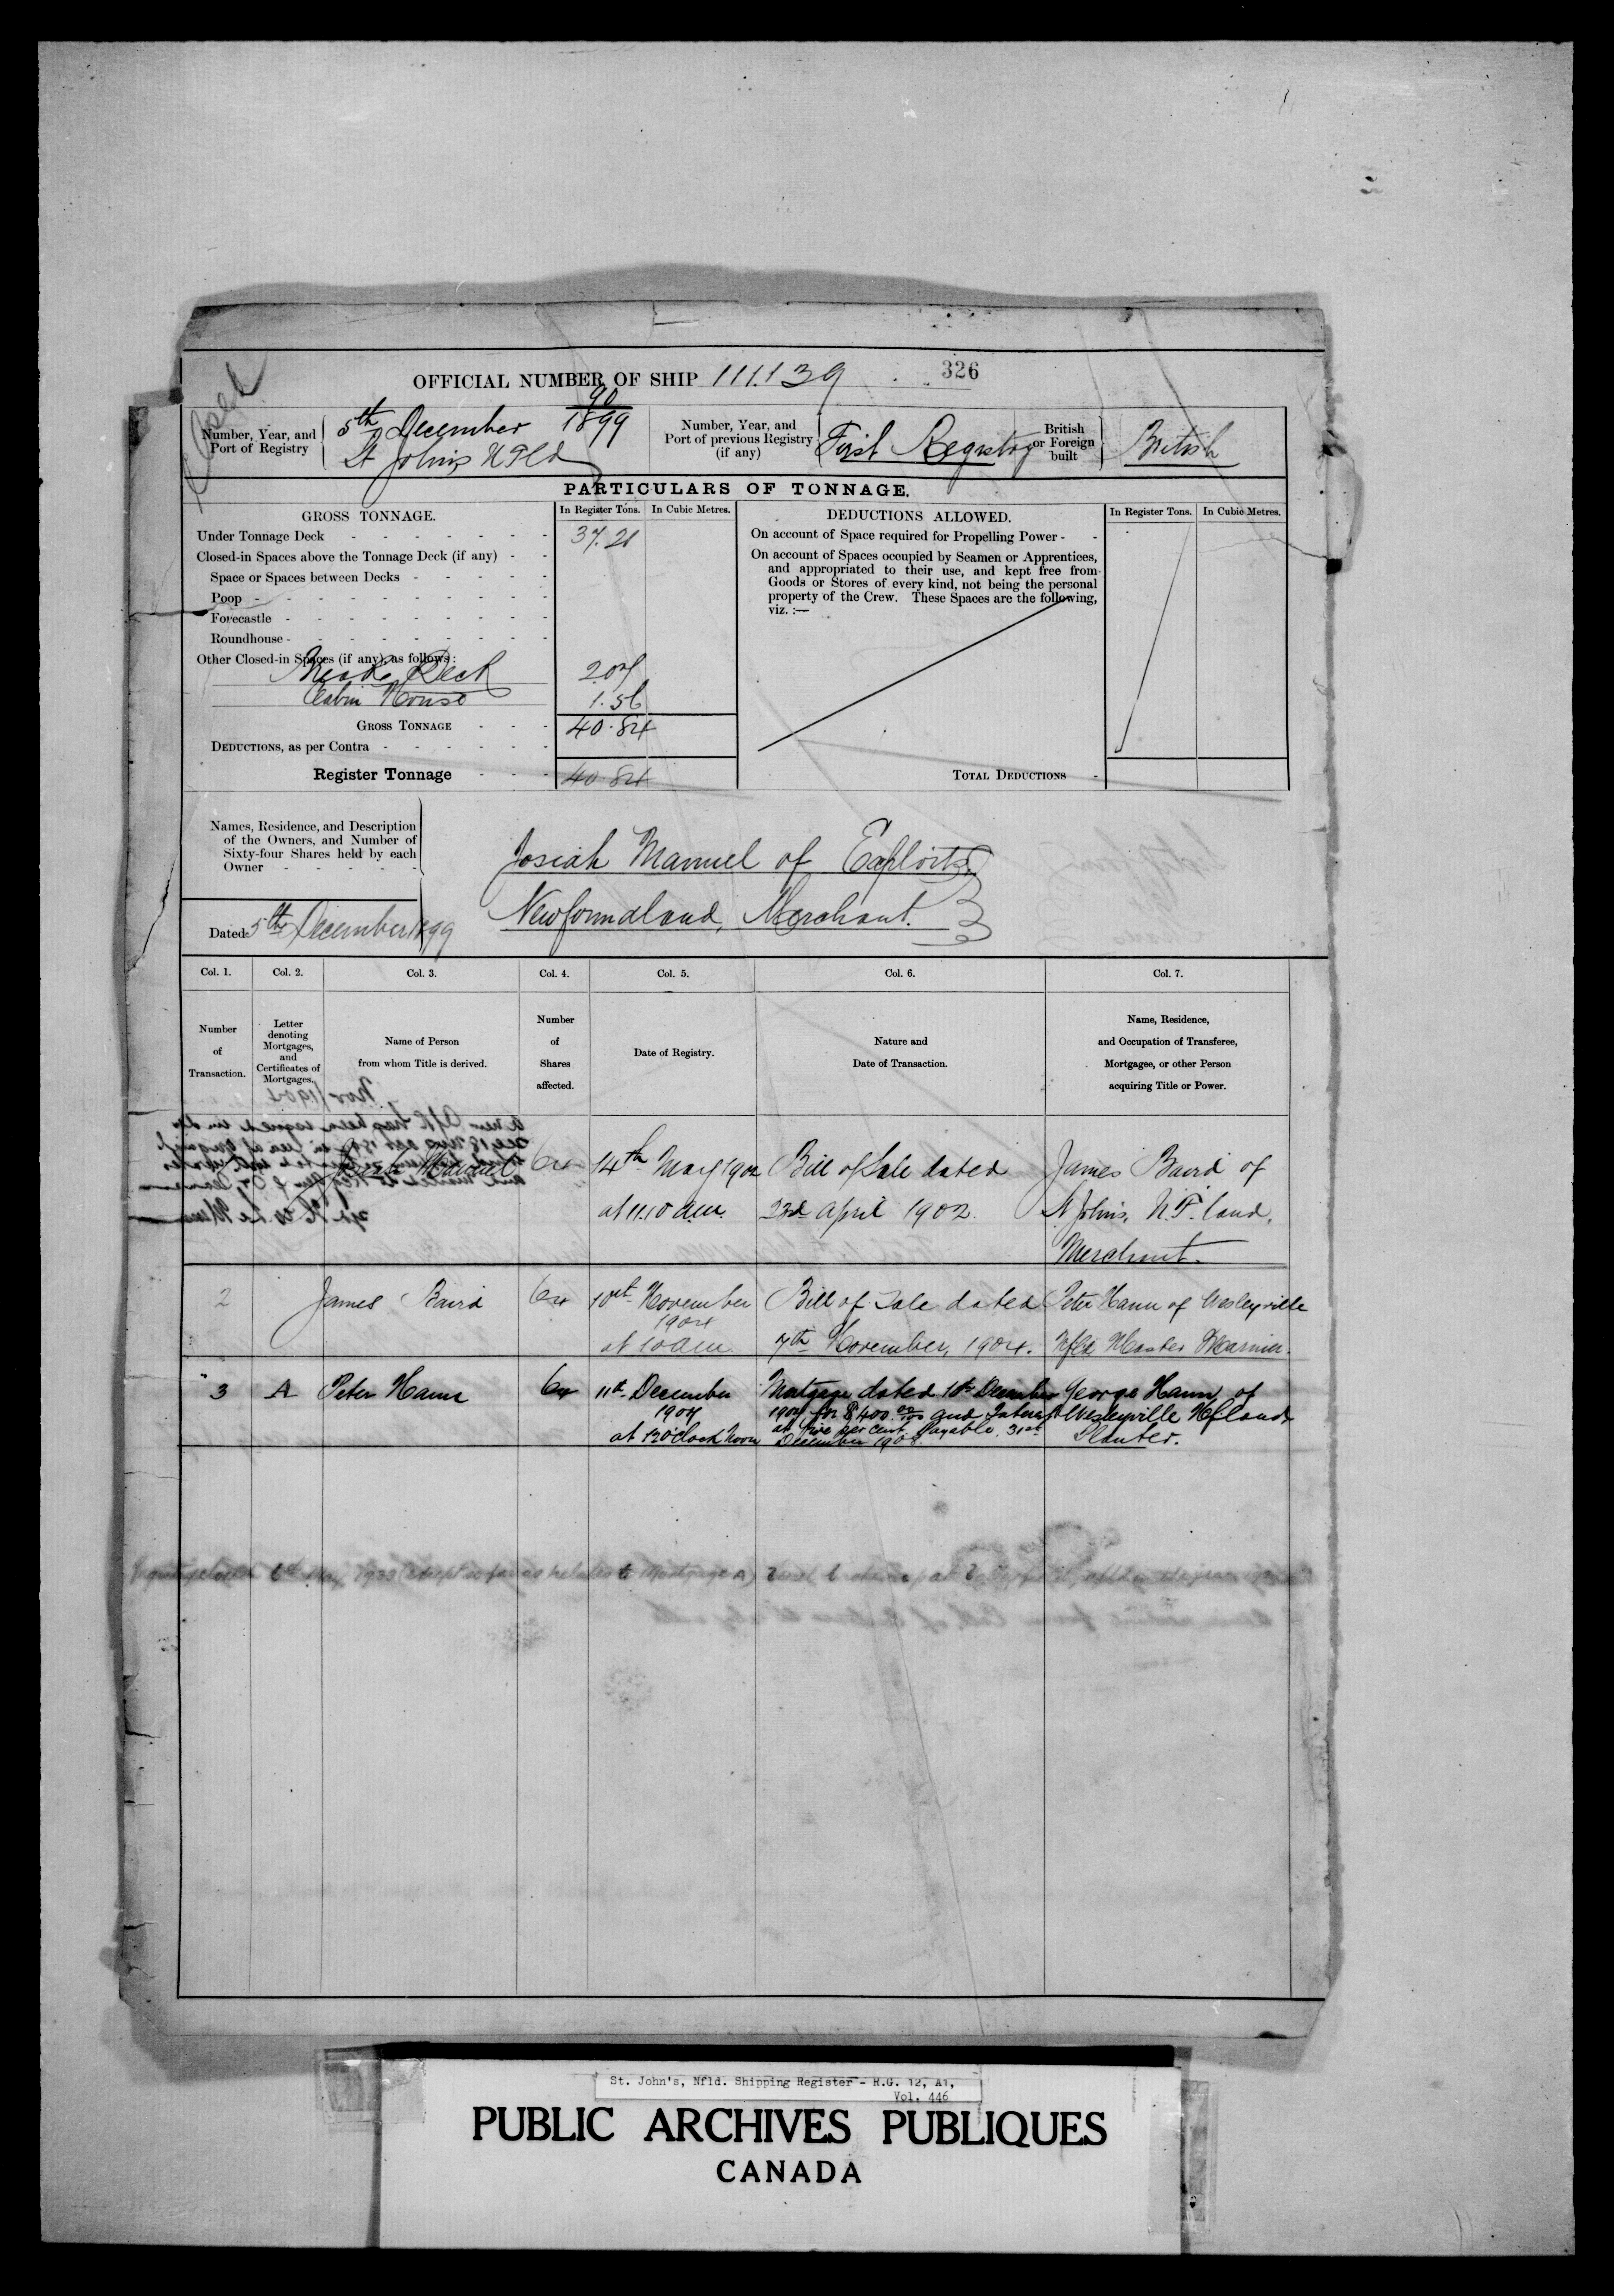 OFFICIAL NUMBER OF SHIP 111.139 326
Closed
Number, Year, and
Port of Registry
5th December 1899
St Johns NFld
Number, Year, and
Port of previous Registry
(if any)
First Registry
British
or Foreign
built
British
PARTICULARS OF TONNAGE.
GROSS TONNAGE. In Register Tons. In Cubic Metres.
Under Tonnage Deck 37.21
Closed-in Spaces above the Tonnage Deck (if any)
Space or Spaces between Decks
Poop
Forecastle
Roundhouse
Other Closed-in Spaces (if any), as follows:
Break Deck 2.07
Cabin House 1.56
GROSS TONNAGE 40.84
DEDUCTIONS, as per Contra
Register Tonnage 40.84
DEDUCTIONS ALLOWED. In Register Tons. In Cubic Metres.
On account of Space required for Propelling Power
On account of Spaces occupied by Seamen or Apprentices,
and appropriated to their use, and kept free from
Goods or Stores of every kind, not being the personal
property of the Crew. These Spaces are the following,
viz. :—
TOTAL DEDUCTIONS
Names, Residence, and Description
of the Owners, and Number of
Sixty-four Shares held by each
Owner
Dated 5th December 1899
Josiah Manuel of Exploits
Newfoundland, Merchant.
Col. 1. Col. 2. Col. 3. Col. 4. Col. 5. Col. 6. Col. 7.
Number
of
Transaction.
Letter
denoting
Mortgages,
and
Certificates of
Mortgages.
Name of Person
from whom Title is derived.
Number
of
Shares
affected.
Date of Registry.
Nature and
Date of Transaction.
Name, Residence,
and Occupation of Transferee,
Mortgagee, or other Person
acquiring Title or Power.
Josiah Manuel 64 14th May 1902 Bill of Sale dated James Baird of
at 11.10 a.m. 23rd April 1902. St Johns, N.F.land,
Merchant.
2 James Baird 64 10th November Bill of Sale dated Peter Hann of Wesleyville
1904
at 10 am 7th November, 1904. Nfld Master Mariner.
3 A Peter Hann 64 11th December Mortgage dated 10th December George Hann, of
1907 1907 for $400.00/100 and Interest Wesleyville Nfland
at five per cent. Payable 31st
at 12 o'clock Noon December 1908. Planter.
St. John's, Nfld. Shipping Register - R.G. 12, A1,
Vol. 446
PUBLIC ARCHIVES PUBLIQUES
CANADA